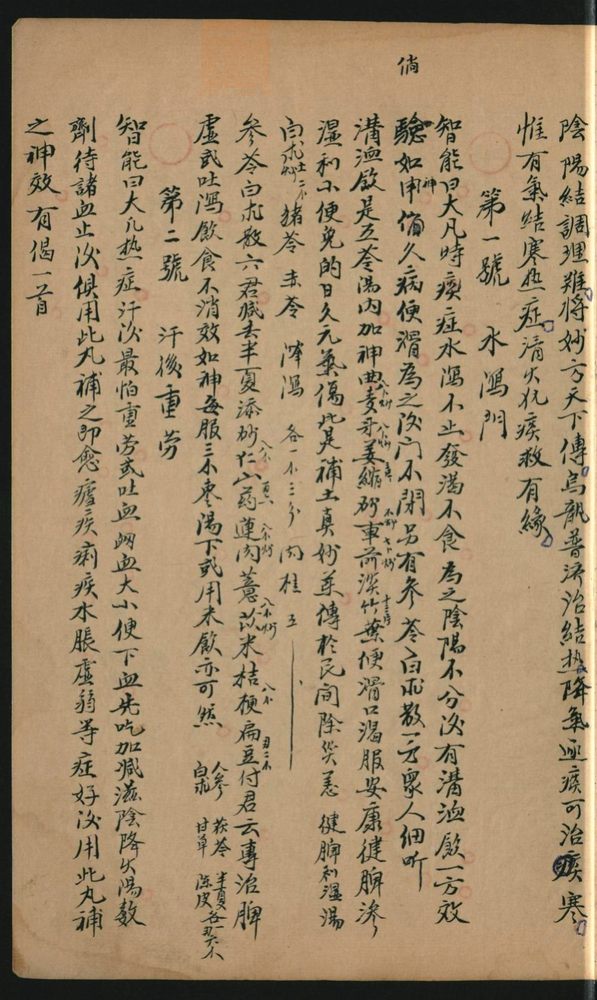 倘
陰陽結調理難將妙方天下傳烏龍普濟治結热降氣逐痰可治痰寒
惟有氣結寒热症清火犹痰救有緣
第一號　水瀉門
智能曰大凡時瘼症水瀉不止發渴不食為之陰陽不分次有清溫飲一方效
驗如神用俻久病便滑為之次门不闭另有參苓白朮散一方眾人细听
清溫飲是五苓湯內加神曲麦牙姜縮砂車前淡竹葉便滑口渴服安康健脾渗
湿利小便免的日久元氣傷此是補土真妙藥傳於民间除災恙　健脾利湿湯
白朮土炒二　猪苓　赤苓　澤瀉　各一　三分　肉桂　五
參苓白朮散六君减去半夏添砂仁山葯蓮肉薏苡米桔梗扁豆付君云專治脾
虛或吐瀉飲食不消效如神每服三　枣湯下或用米飲亦可然
人參　茯苓　半夏
白朮　甘草　陳皮各
第二號　汗後重劳
智能曰大凡热症汗次最怕重劳或吐血衂血大小便下血先吃加减滋陰降火湯数
劑待諸血止次俱用此丸補之即愈瘧疾痢疾水脹虛弱等症好次用此丸補
之神效有偈一首